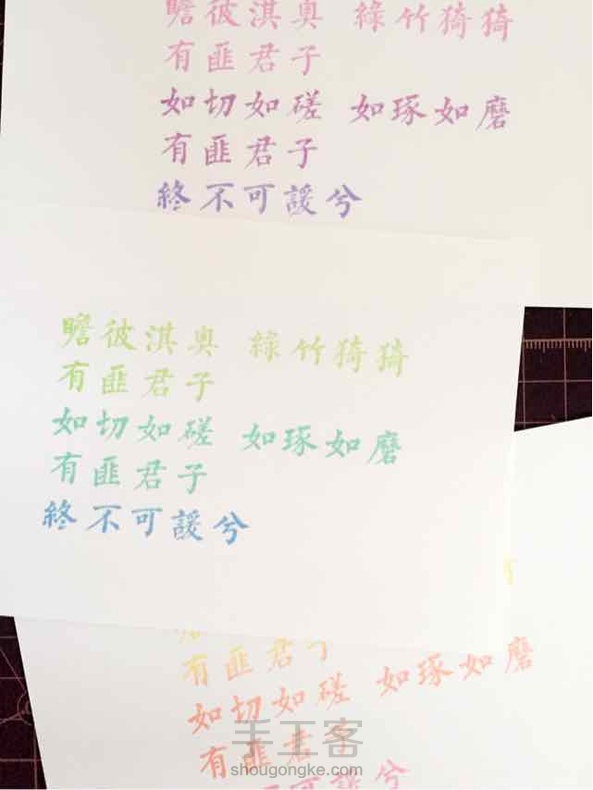 瞻彼淇奧 綠竹猗猗
有匪君子
如切如磋 如琢如磨
有匪君子
終不可諼兮
瞻彼淇奧 綠竹猗猗
有匪君子
如切如磋 如琢如磨
有匪君子
終不可諼兮
有匪君子
如切如磋 如琢如磨
有匪君子
不可諼兮
手工客
shougongke.com